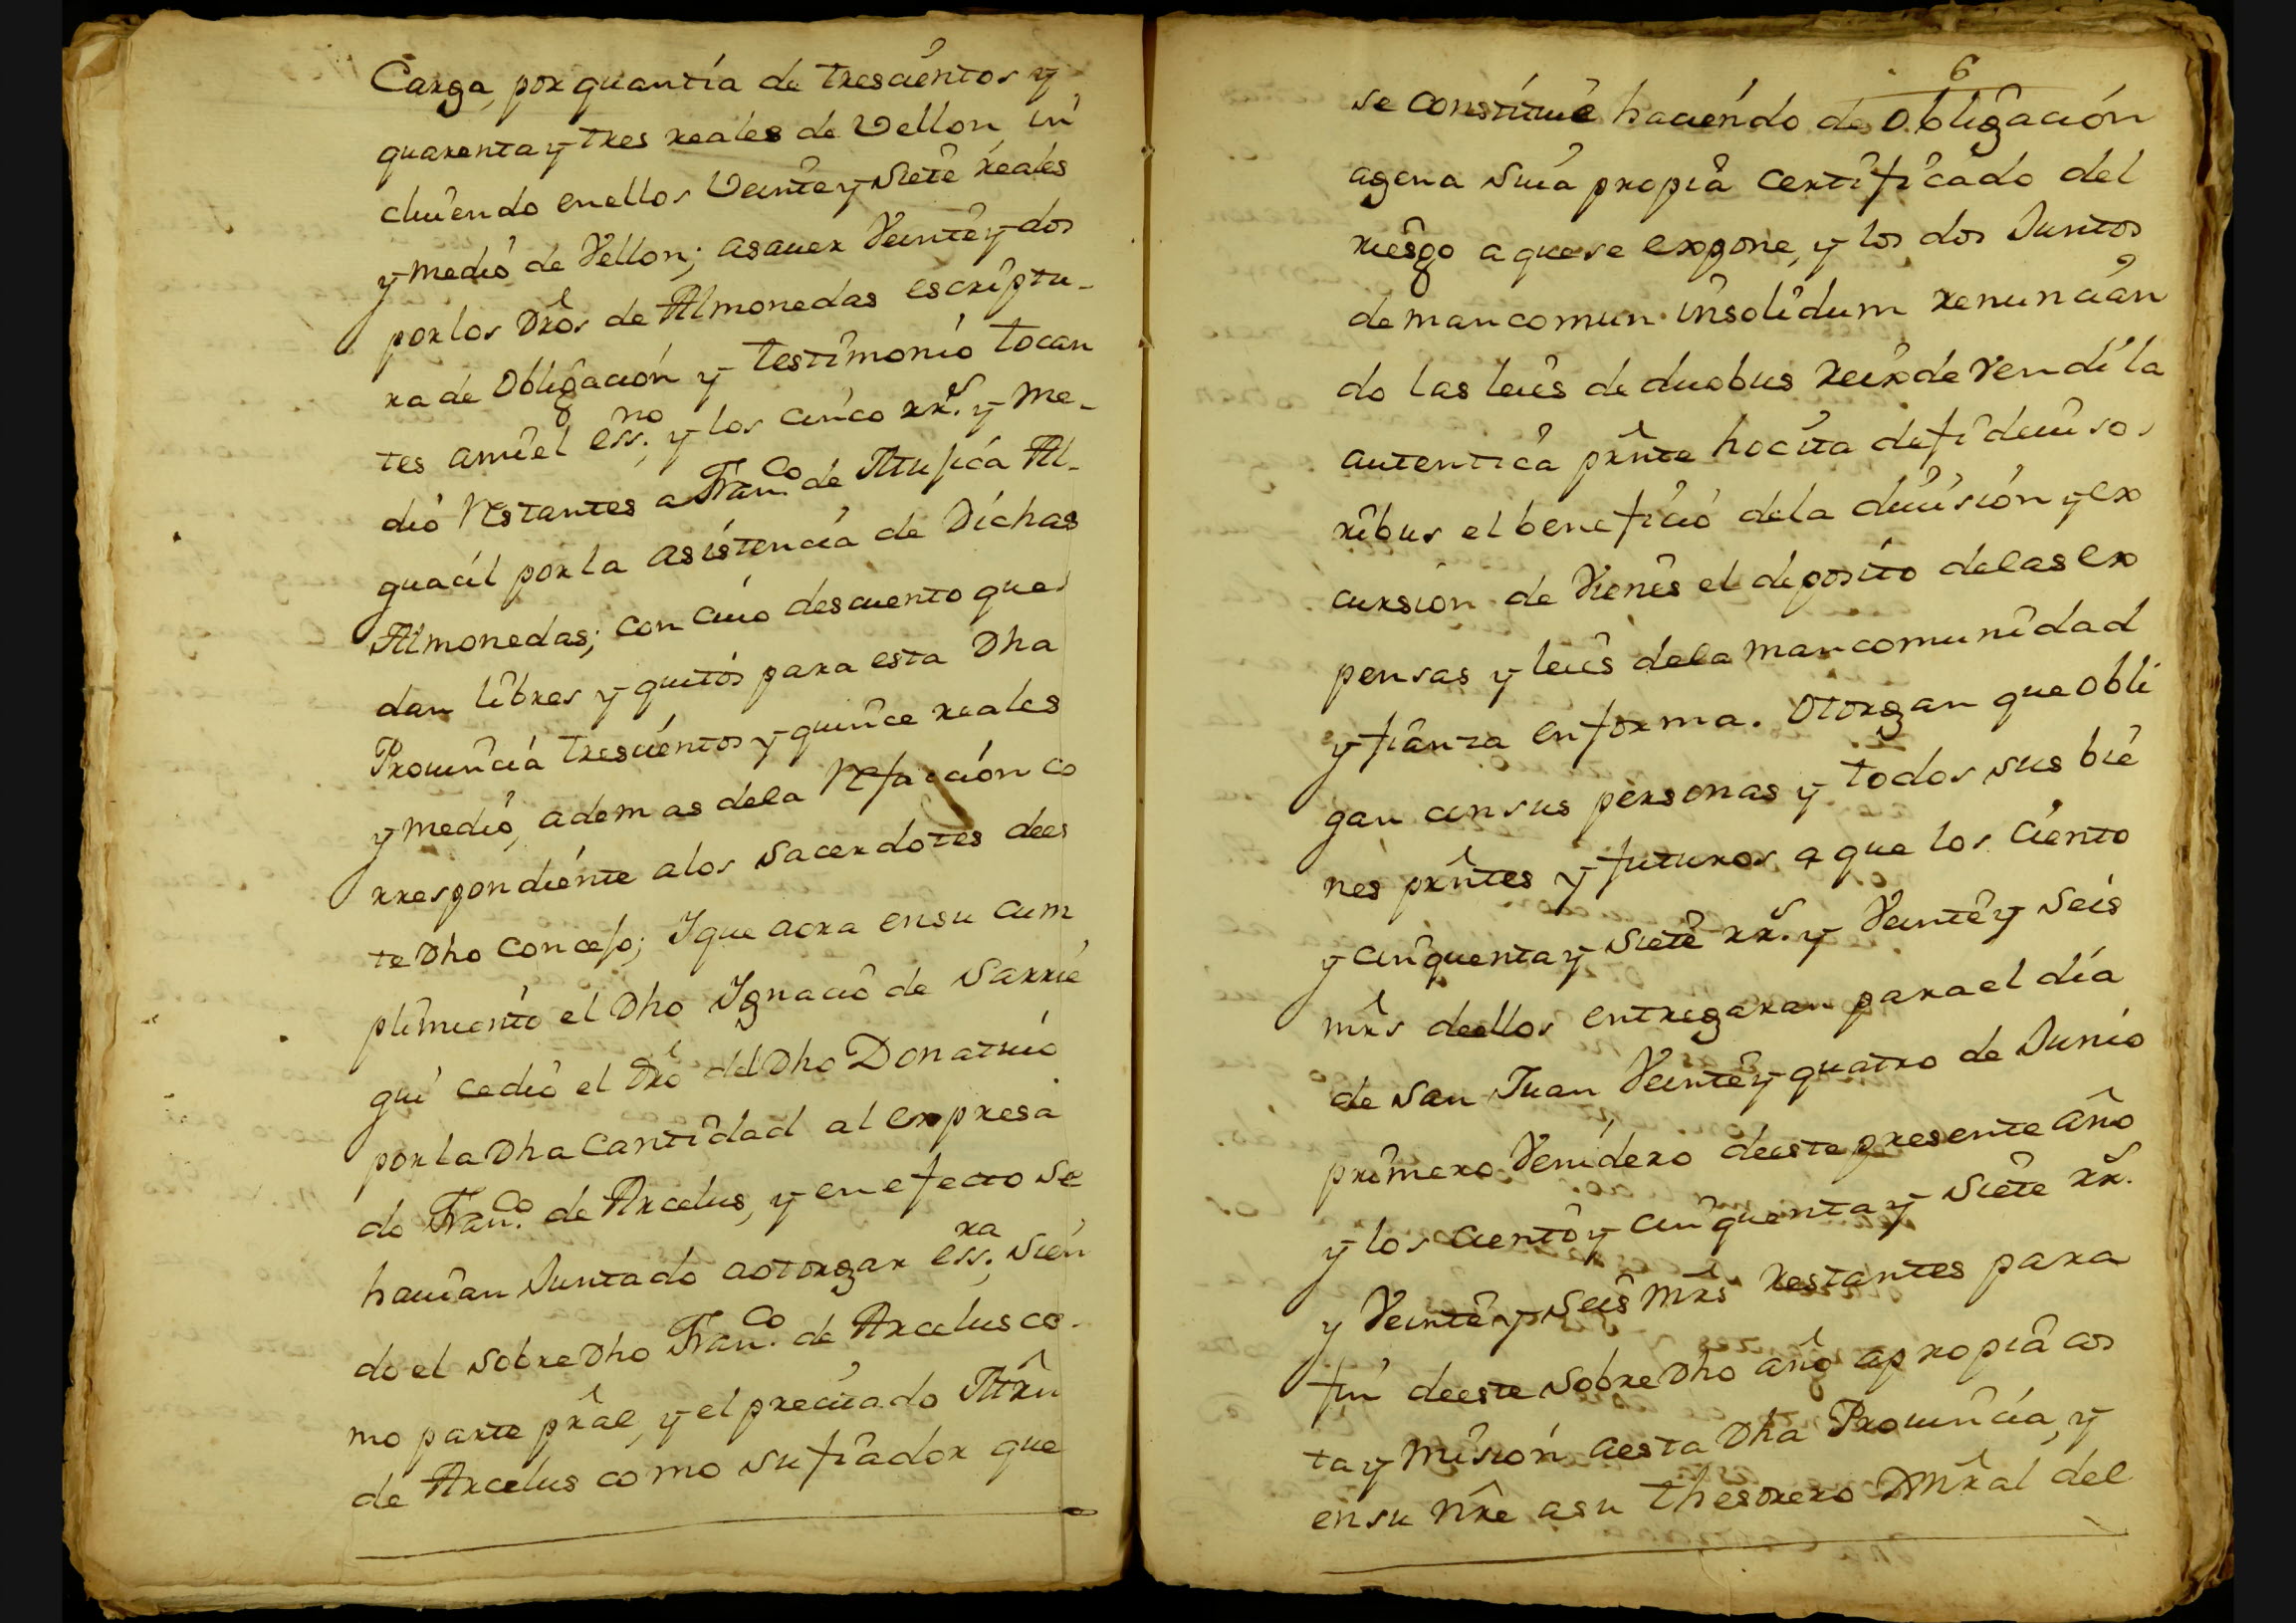 Carga, por quantía de trescientos y
quarenta y tres reales de Vellon, in
cluiendo en ellos Veinte y siete reales
y medio de Vellon; asauer Veinte y dos
por los Dros de Almonedas escriptu-
ra de Obligación y testimonio tocan
tes ami el essno; y los cinco rrs. y me-
dio restantes a Franco. de Atusica Al-
guacil por la asistencia de Dichas
Almonedas; con cuio descuento que
dan libres y quitos para esta Dha
Prouincia trescientos y quince reales
y medio, ademas dela refacción co
rrespondiente alos sacerdotes de es
te Dho concejo; Y que aora en su cum
plimiento el Dho Ygnacio de Sarrie
gui cedio el Dro del Dho Donatiuo
por la Dha Cantidad al expresa
do Franco. de Arcelus, y en efecto se
hauian Juntado aotorgar essra; sien
do el sobre Dho Franco. de Arcelus co-
mo parte pral, y el precitado
de Arcelus como su fiador que
6
se constitue haciendo de obligación
agena suia propia certificado del
riesgo a que se expone, y los dos Juntos
de mancomun insolidum renuncian
do las leies de duobus reix de vendi la
autentica prnte hocita de fideiuso
ribus el beneficio dela diuisión y ex
cursion de Vienes el deposito delas ex
pensas y leies dela mancomunidad
y fianza en forma. Otorgan que obli
gan con sus personas y todos sus bie
nes prntes y futuros a que los ciento
y cinquenta y siete rrs. y Veinte y seis
mrs dellos entregaran para el día
de San Juan Veinte y quatro de Junio
primero Venidero deeste presente año
y los ciento y cinquenta y siete rrs.
y Veinte y seis mrs restantes para
fin deeste sobre Dho año apropia cos
ta y mision aesta Dha Prouincia, y
en su nre asu thesorero Gnral del